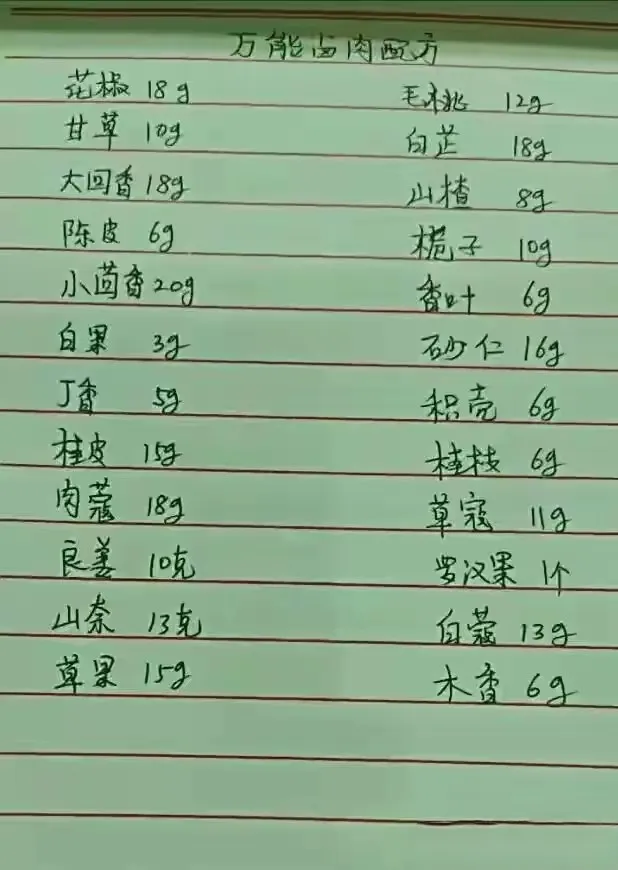 万能卤肉配方
花椒 18g 毛桃 12g
甘草 10g 白芷 18g
大回香 18g 山楂 8g
陈皮 6g 栀子 10g
小茴香 20g 香叶 6g
白果 3g 砂仁 16g
丁香 5g 积壳 6g
桂皮 15g 桂枝 6g
肉蔻 18g 草寇 11g
良姜 10克 罗汉果 1个
山奈 13克 白蔻 13g
草果 15g 木香 6g